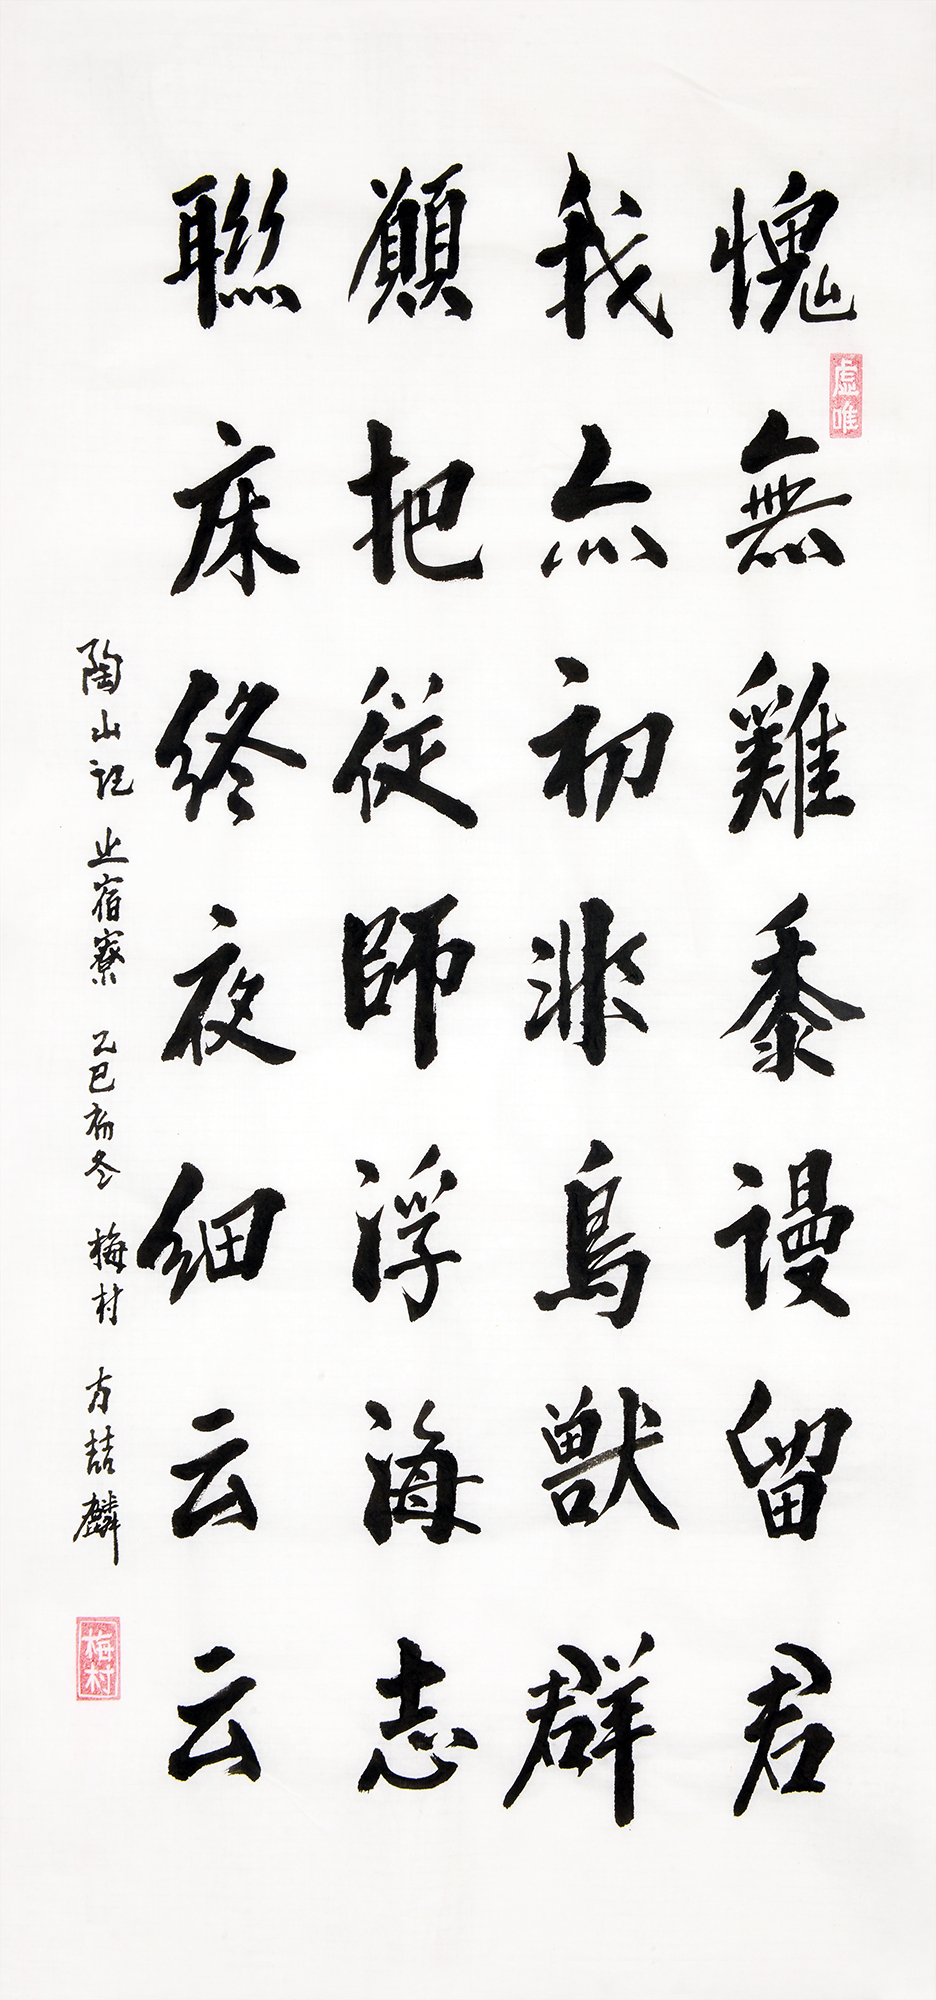 愧無雞黍謾留君
我亦初非鳥獸群
願把從師浮海志
聯床終夜細云云
陶山記 止宿寮 乙巳初冬 梅村 方喆麟
虛唯
梅村